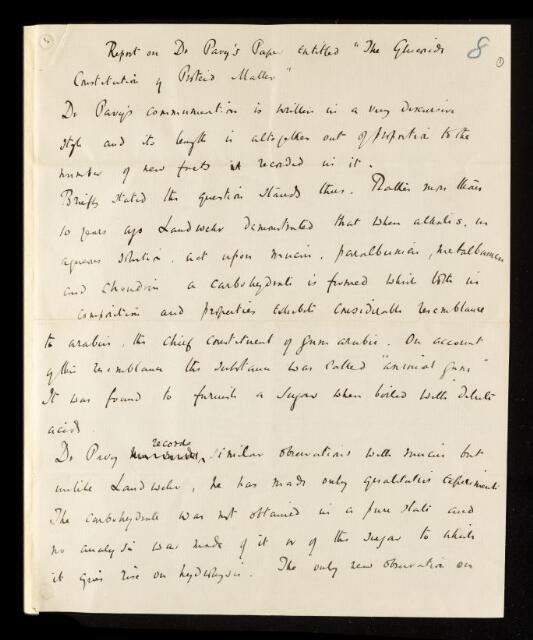 8
1
Report on Dr Pavy's Paper entitled "The Glucoside
Constitution of Proteid Matter"
Dr Pavy's communication is written in a very discursive
style and its length is altogether out of proportion to the
number of new facts recorded in it.
Briefly stated the question stands thus. Rather more than
10 years ago Landwehr demonstrated that when alkalis, in
aqueous solution, act upon mucin, paralbumin, metalbumin
and chondrin a carbohydrate is formed which both in
composition and properties exhibits considerable resemblance
to arabin, the chief constituent of gum arabic. On account
of this resemblance the substance was called "animal gum"
It was found to furnish a sugar when boiled with dilute
acids.
Dr Pavy records similar observations with mucin but
unlike Landwehr, he has made only qualitative experiments
The carbohydrate was not obtained in a pure state and
no analysis was made of it or of the sugar to which
it gives rise on hydrolysis. The only new observation on